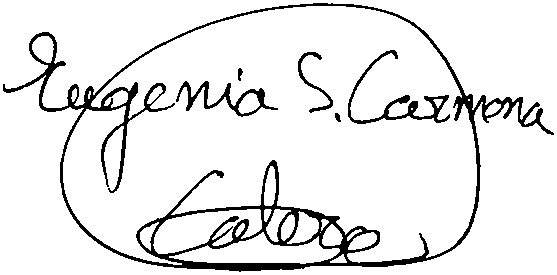 Eugenia S. Carmona
Calero